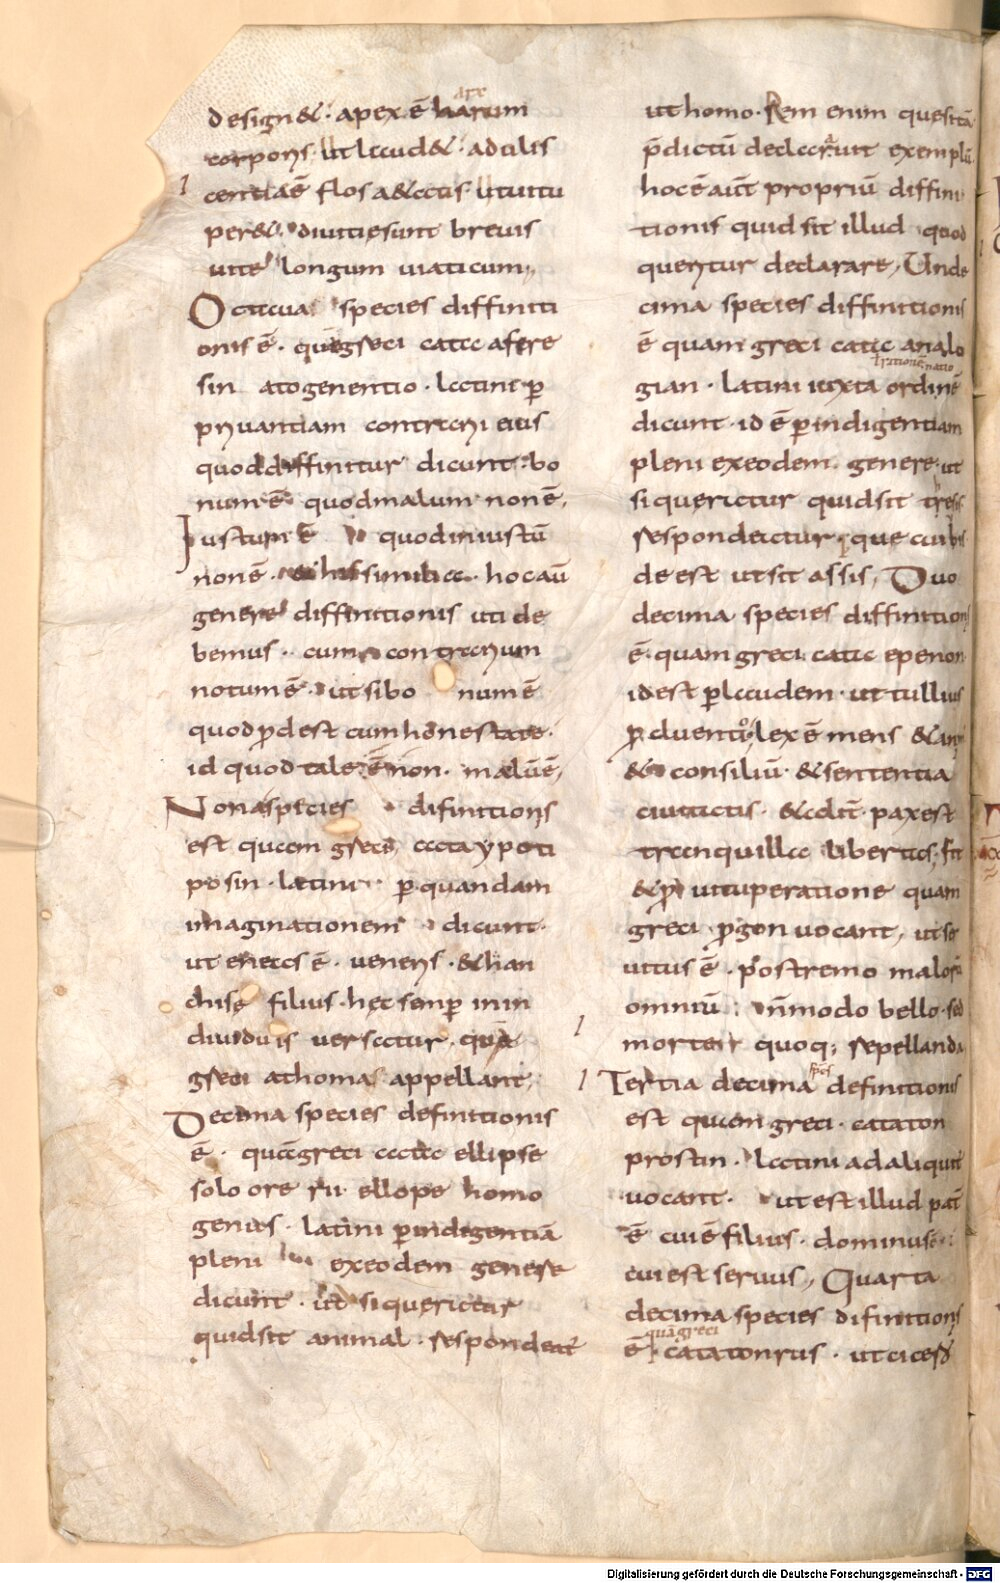 design&. apex ē harum
corporis. ut laud&. adulis
centiaē flos a&atis ut uitu
per&. diuitiesunt breuis
uitę longum uiaticum;
Octaua species diffiniti
onis ē. quēgreci cata afere
sin atogenentio. latine ꝑ
priuantiam contrarii eius
quoddiffinitur dicunt. bo
num ē quodmalum non ē,
Iustum ē quodiniustū
non ē. &hissimilia. hocaū
genere diffinitionis uti de
bemus. cum contrarium
notum ē. ut sibo num ē
quod ꝓdest cumhonestate.
id quod tale ē non. malū ē,
Nonaspecies difinitionis
est quam greci catayponti
posin. latini ꝑ quandam
imaginationem dicunt.
ut eneas ē. ueneris. &han
chisę filius. hec semꝑ inin
diuiduis uersatur. quę
greci athomas appellant;
Decima species definitionis
ē. quāgreci cata ellipse
solo ore rii. ellope homo
genius. latini ꝑindigentiā
pleni exeodem genere
dicunt. ut siqueratur
quidsit animal. respondeat̄
ut homo. Rem enim quesitā
p̄dictū declarauit exemplū
hoc ē aut̄ propriū diffini
tionis quid sit illud quod
queritur declarare, Unde
cima species diffinitionis
ē quam greci cata analo
gian. latini iuxta ordinē
dicunt. id ē ꝑindigentiam
pleni exeodem. genere. ut
si queratur quidsit tressis
respondeatur. que cuibis
de est ut sit assis, Duo
decima species diffinitionis
ē. quam greci cata epenon
idest ꝑlaudem. ut tullius
ꝓcluentio. lex ē mens &ani
& consiliū. &sententia
ciuitatis. & pax est
tranquilla libertas, fit
&ꝑ uituperatione quam
greci uocant, ut ser
uitus ē. postremo malorū
omniū n̄modo bello. sed
morte quoq; repellanda
Tertia decima spēs definitionis
est quam greci. cataton
prostin. latini adaliquit
uocant. ut est illud pat̄
ē cui ē filius. dominus ē.
cui est seruus, Quarta
decima species difinitionis
ē quāgreci catatonrus. ut cicero